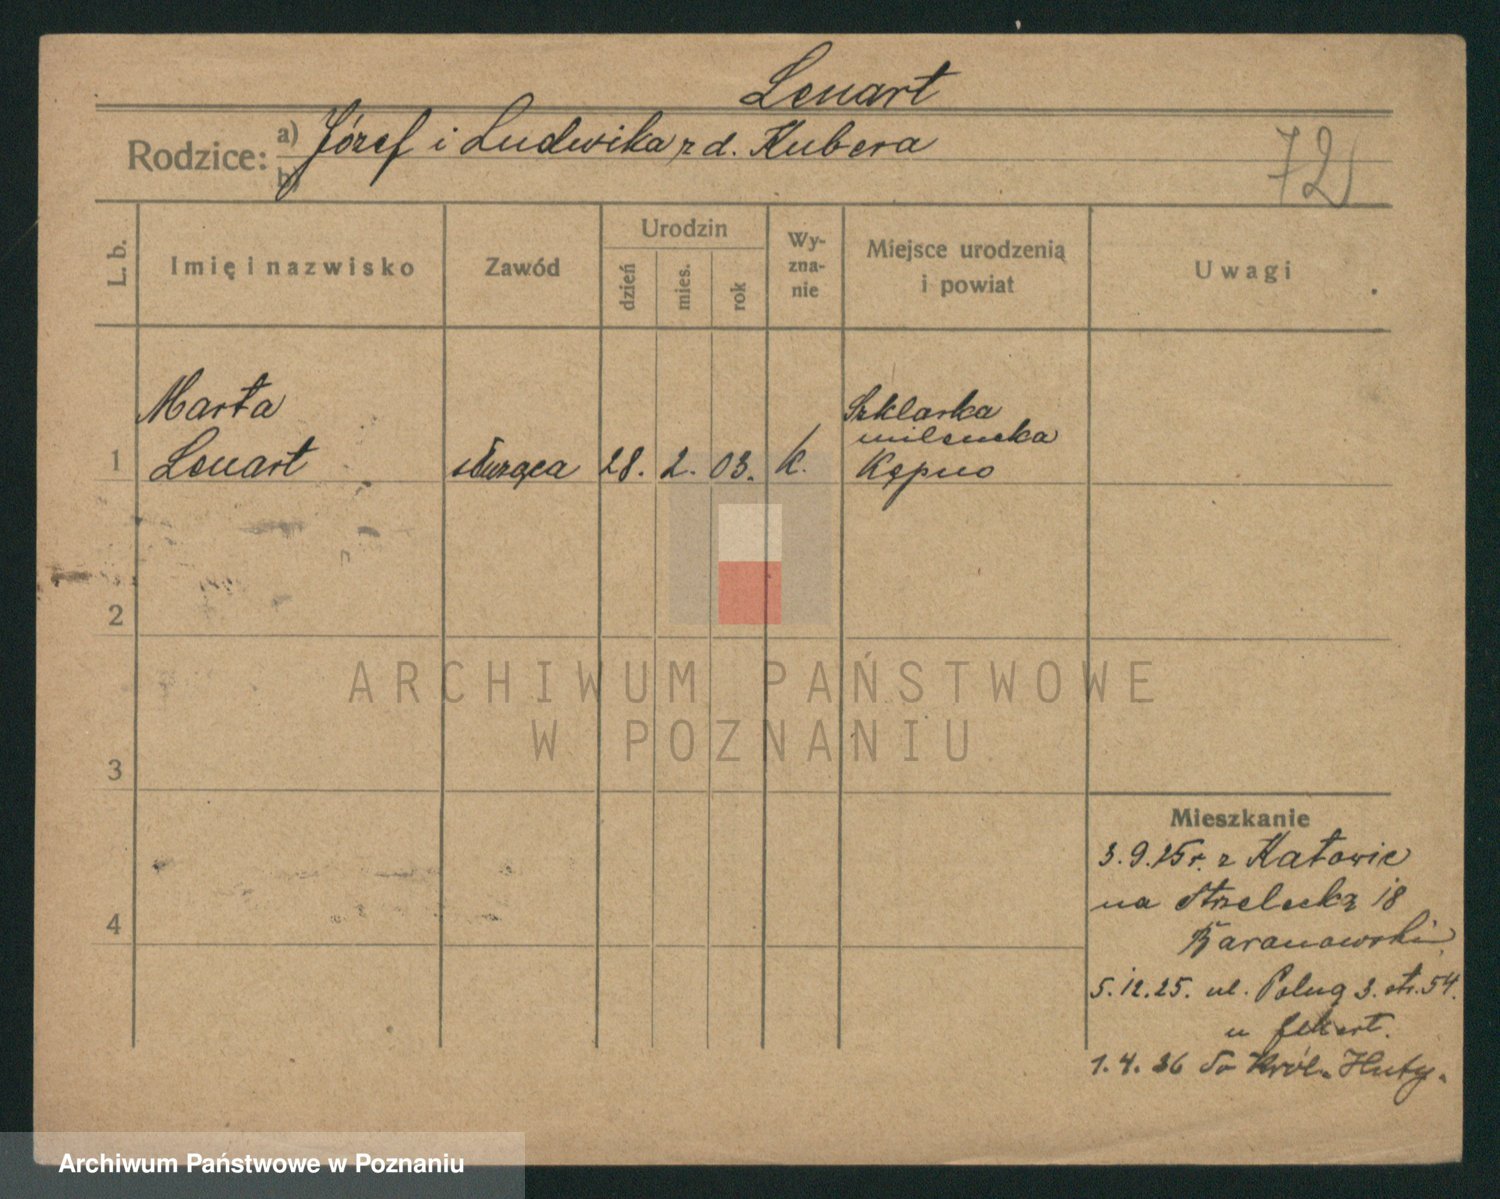 Lenart
Rodzice: a) Józef i Ludwika z d. Kubera
b)
72
L. b. Imię i nazwisko Zawód Urodzin dzień mies. rok Wy-zna-nie Miejsce urodzenia i powiat Uwagi
Marta
Szklarka
milencka
1 Lenart służąca 28. 2. 03. k. Kępno
2
ARCHIWUM PAŃSTWOWE
W POZNANIU
3
Mieszkanie
3.9.25 r. z Katowic
na Strzelecką 18
4
Baranowski
5.12.25. ul. 3. str. 54.
u
1.4.26 do Król. Huty.
Archiwum Państwowe w Poznaniu